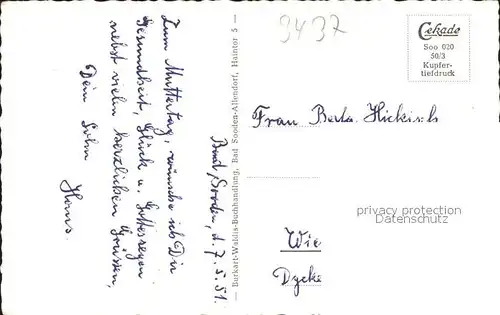 Bad Sooden, d. 7.5.51.
Zum Muttertag, wünsche ich Dir
Gesundheit, Glück u. Gottessegen
nebst vielen herzlichen Grüssen,
Dein Sohn
Hans.
— Burkart-Wahlis-Buchhandlung, Bad Sooden-Allendorf, Haintor 5 —
9437
Cekade
Soo 020
50/3
Kupfer-
tiefdruck
Frau Berta Hickisch
privacy protection
Datenschutz
Wie
Dyck